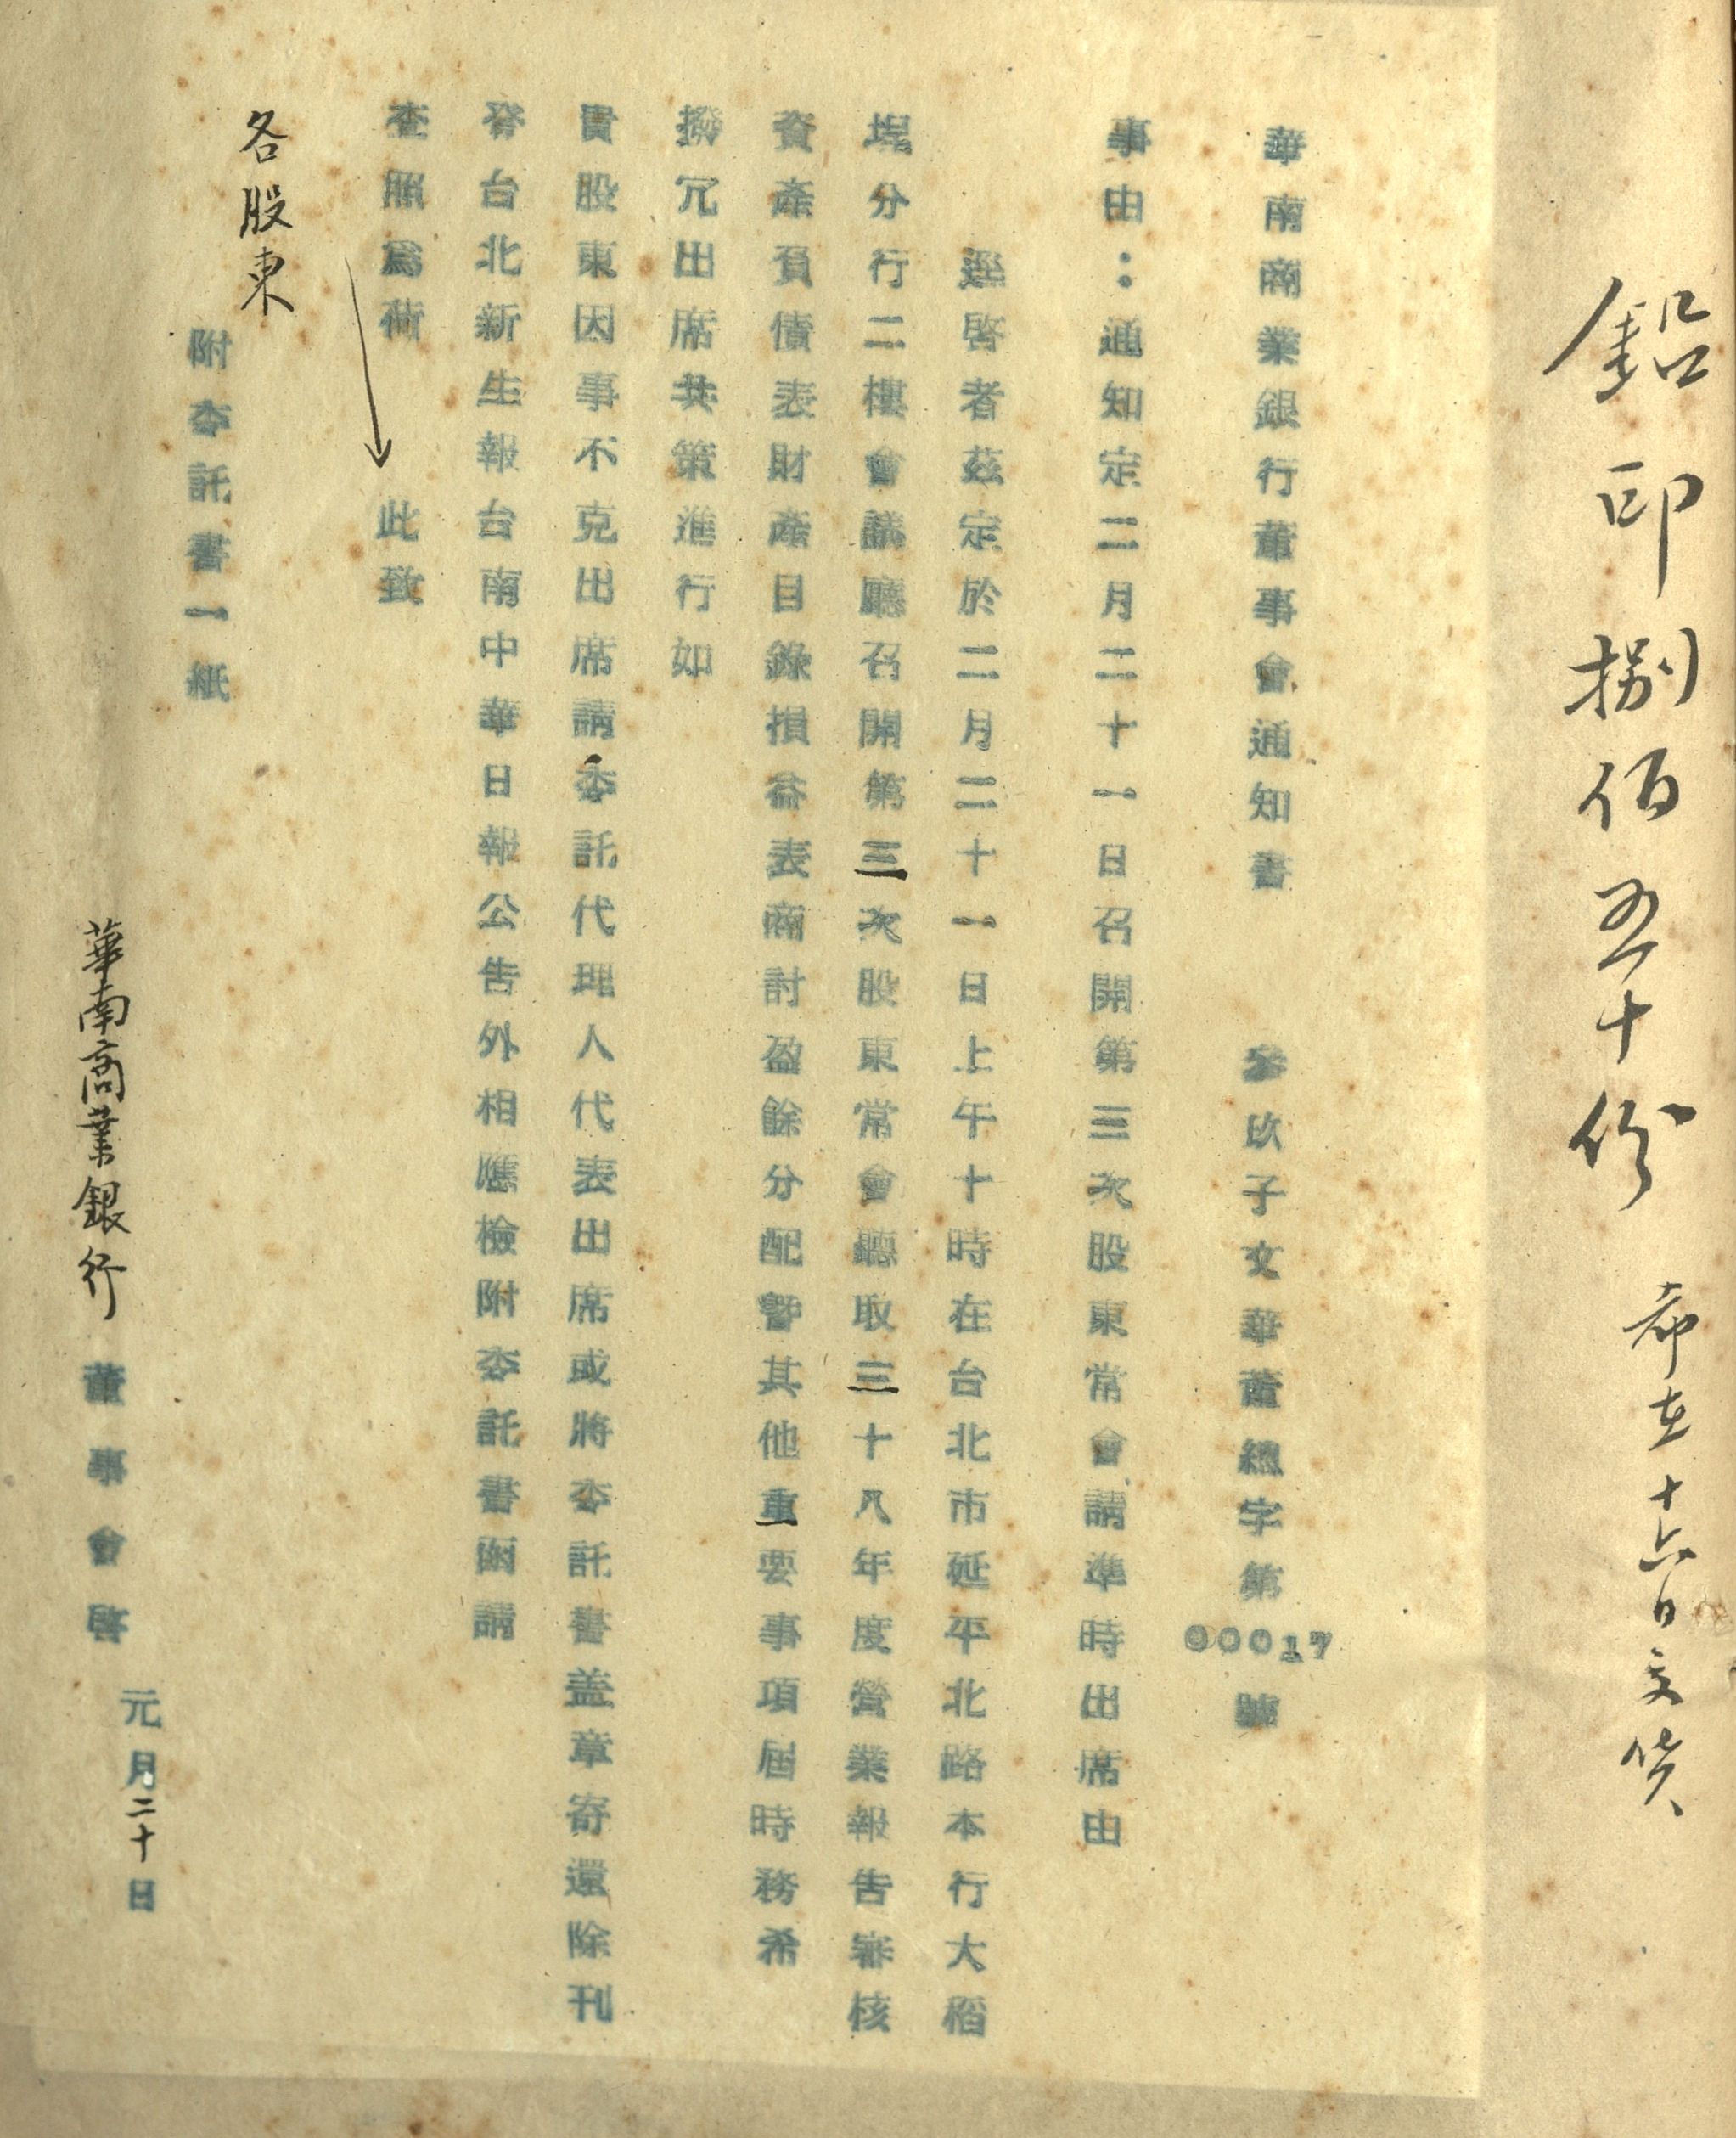 鉛印捌佰五十份 希在十六日交貨
華南商業銀行董事會通知書 叁玖子文華董總字第00017號
事由：通知定二月二十一日召開第三次股東常會請準時出席由
逕啓者茲定於二月二十一日上午十時在台北市延平北路本行大稻
埕分行二樓會議廳召開第三次股東常會聽取三十八年度營業報告審核
資產負債表財產目錄損益表商討盈餘分配暨其他重要事項屆時務希
撥冗出席共策進行如
貴股東因事不克出席請委託代理人代表出席或將委託書盖章寄還除刊
登台北新生報台南中華日報公告外相應檢附委託書函請
查照爲荷 此致
各股東
附委託書一紙
華南商業銀行董事會啓
元月二十日